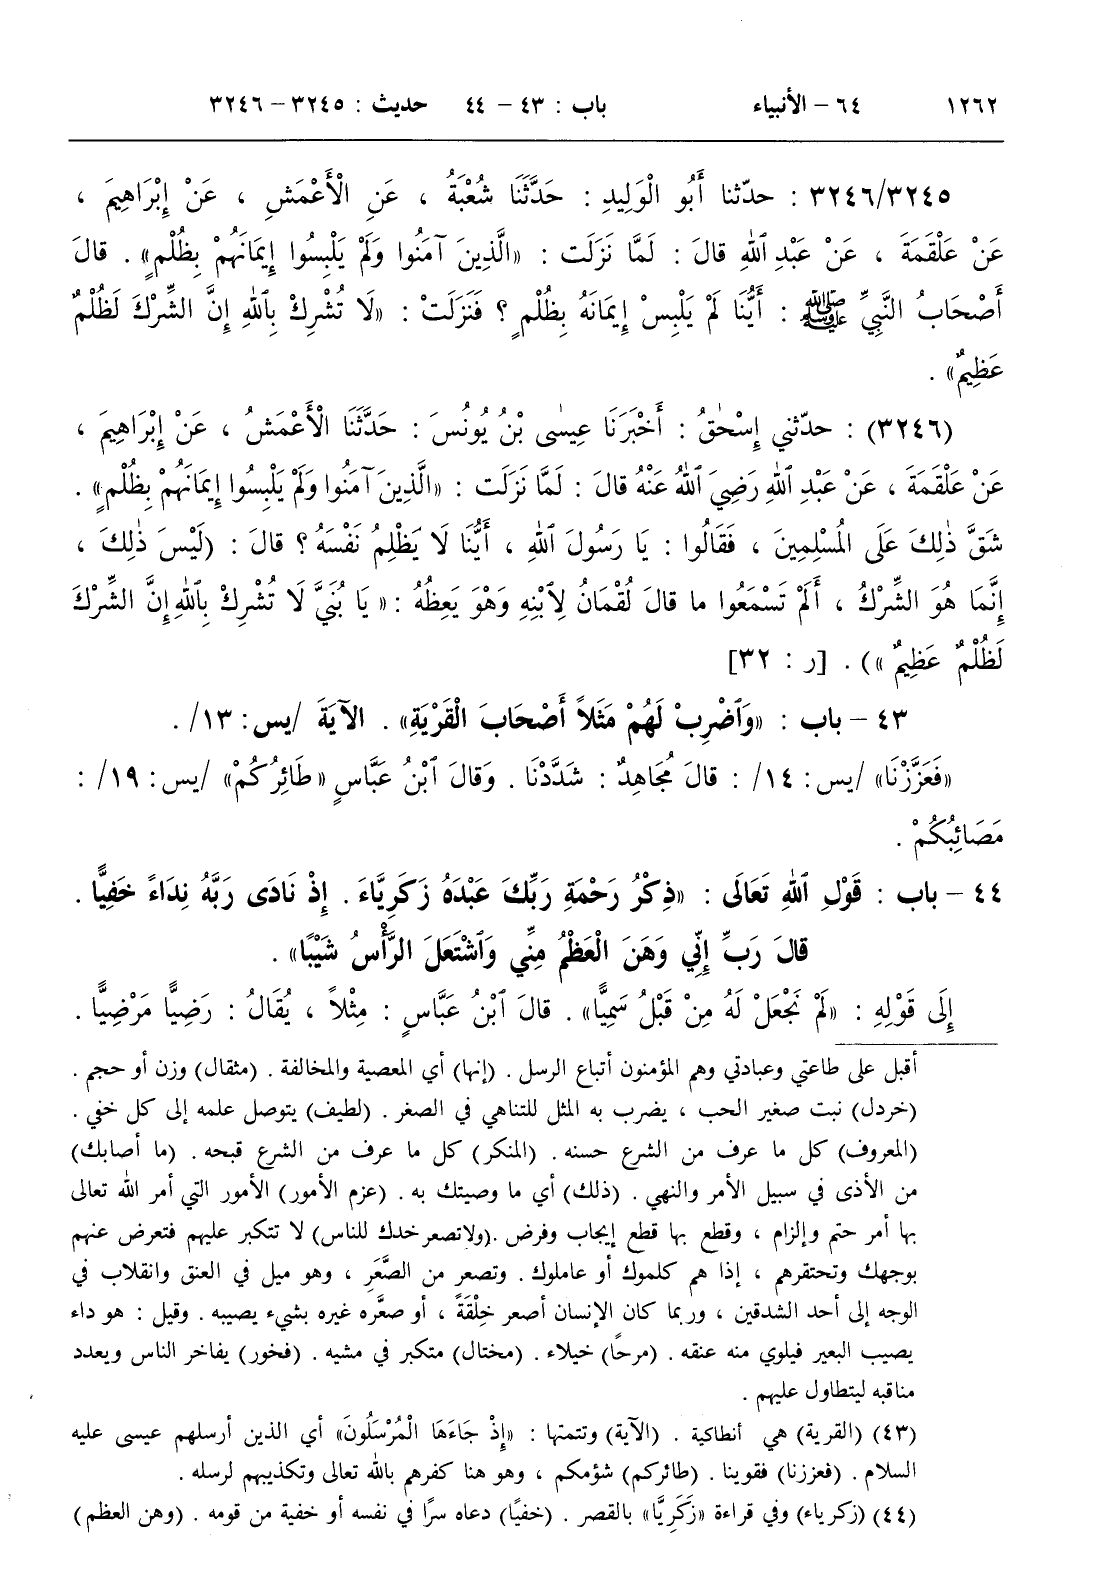 ١٢٦٢ ٦٤ – الأنبياء باب : ٤٣ – ٤٤ حديث : ٣٢٤٥ – ٣٢٤٦
٣٢٤٦/٣٢٤٥ : حدّثنا أَبُو الْوَلِيدِ : حَدَّثَنَا شُعْبَةُ ، عَنِ الْأَعْمَشِ ، عَنْ إِبْرَاهِيمَ ،
عَنْ عَلْقَمَةَ ، عَنْ عَبْدِ ٱللهِ قالَ : لَمَّا نَزَلَت : «الَّذِينَ آمَنُوا وَلَمْ يَلْبِسُوا إِيمَانَهُمْ بِظُلْمٍ» . قالَ
أَصْحَابُ النَّبِيِّ ﷺ : أَيُّنَا لَمْ يَلْبِسْ إِيمَانَهُ بِظُلْمٍ ؟ فَنَزَلَتْ : «لَا تُشْرِكْ بِٱللهِ إِنَّ الشِّرْكَ لَظُلْمٌ
عَظِيمٌ» .
(٣٢٤٦) : حدّثني إِسْحٰقُ : أَخْبَرَنَا عِيسٰى بْنُ يُونُسَ : حَدَّثَنَا الْأَعْمَشُ ، عَنْ إِبْرَاهِيمَ ،
عَنْ عَلْقَمَةَ ، عَنْ عَبْدِ ٱللهِ رَضِيَ ٱللهُ عَنْهُ قالَ : لَمَّا نَزَلَت : «الَّذِينَ آمَنُوا وَلَمْ يَلْبِسُوا إِيمَانَهُمْ بِظُلْمٍ» .
شَقَّ ذٰلِكَ عَلَى المُسْلِمِينَ ، فَقَالُوا : يَا رَسُولَ ٱللهِ ، أَيُّنَا لَا يَظْلِمُ نَفْسَهُ ؟ قالَ : (لَيْسَ ذٰلِكَ ،
إِنَّمَا هُوَ الشِّرْكُ ، أَلَمْ تَسْمَعُوا ما قالَ لُقْمَانُ لِٱبْنِهِ وَهْوَ يَعِظُهُ : « يَا بُنَيَّ لَا تُشْرِكْ بِٱللهِ إِنَّ الشِّرْكَ
لَظُلْمٌ عَظِيمٌ ») . [ر : ٣٢]
٤٣ – باب : «وَٱضْرِبْ لَهُمْ مَثَلاً أَصْحَابَ الْقَرْيَةِ» . الآيَةَ /يس: ١٣/ .
«فَعَزَّزْنَا» /يس: ١٤/ : قالَ مُجَاهِدٌ : شَدَّدْنَا . وَقالَ ٱبْنُ عَبَّاسٍ «طَائِرُكُمْ» /يس: ١٩/ :
مَصَائِبُكُمْ .
٤٤ – باب : قَوْلِ ٱللهِ تَعَالَى : «ذِكْرُ رَحْمَةِ رَبِّكَ عَبْدَهُ زَكَرِيَّاءَ . إِذْ نَادَى رَبَّهُ نِدَاءً خَفِيًّا .
قالَ رَبِّ إِنِّي وَهَنَ الْعَظْمُ مِنِّي وَٱشْتَعَلَ الرَّأْسُ شَيْبًا» .
إِلَى قَوْلِهِ : «لَمْ نَجْعَلْ لَهُ مِنْ قَبْلُ سَمِيًّا» . قالَ ٱبْنُ عَبَّاسٍ : مِثْلاً ، يُقَالُ : رَضِيًّا مَرْضِيًّا .
أقبل على طاعتي وعبادتي وهم المؤمنون أتباع الرسل . (إنها) أي المعصية والمخالفة . (مثقال) وزن أو حجم .
(خردل) نبت صغير الحب ، يضرب به المثل للتناهي في الصغر . (لطيف) يتوصل علمه إلى كل خفي .
(المعروف) كل ما عرف من الشرع حسنه . (المنكر) كل ما عرف من الشرع قبحه . (ما أصابك)
من الأذى في سبيل الأمر والنهي . (ذلك) أي ما وصيتك به . (عزم الأمور) الأمور التي أمر الله تعالى
بها أمر حتم وإلزام ، وقطع بها قطع إيجاب وفرض .(ولا تصعر خدك للناس) لا تتكبر عليهم فتعرض عنهم
بوجهك وتحتقرهم ، إذا هم كلموك أو عاملوك . وتصعر من الصَّعَرِ ، وهو ميل في العنق وانقلاب في
الوجه إلى أحد الشدقين ، وربما كان الإنسان أصعر خِلْقَةً ، أو صعَّره غيره بشيء يصيبه . وقيل : هو داء
يصيب البعير فيلوي منه عنقه . (مرحًا) خيلاء . (مختال) متكبر في مشيه . (فخور) يفاخر الناس ويعدد
مناقبه ليتطاول عليهم .
(٤٣) (القرية) هي أنطاكية . (الآية) وتتمتها : «إِذْ جَاءَهَا الْمُرْسَلُونَ» أي الذين أرسلهم عيسى عليه
السلام . (فعززنا) فقوينا . (طائركم) شؤمكم ، وهو هنا كفرهم بالله تعالى وتكذيبهم لرسله .
(٤٤) (زكرياء) وفي قراءة «زَكَرِيَّا» بالقصر . (خفيًا) دعاه سرًا في نفسه أو خفية من قومه . (وهن العظم)